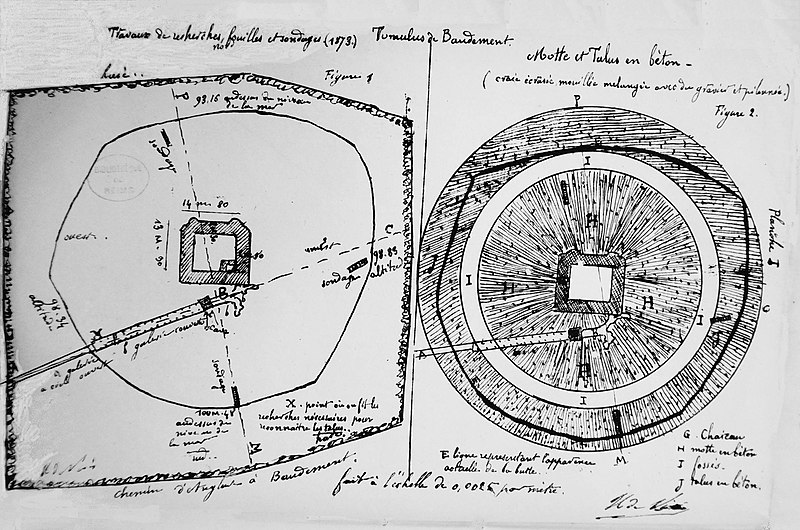 Travaux de recherches, fouilles et sondages (1873.) Tumulus de Baudement.
nord
Figure 1
93.16 audessus du niveau
de la mer
sondage
14 m. 80
13 M. 90
ouest
C
98.83
altitude
sondage
98.94
altitude
B
X
galerie couverte
a ciel ouvert
sondage
100M.48
audessus du
niveau de
la mer
sud
M
X. point où on fit les
recherches nécessaires pour
reconnaître les talus
chemin d'Anglure à Baudement.
fait à l'échelle de 0,0025 par mètre.
Motte et Talus en béton -
(craie écrasée mouillée mélangée avec du gravier et pilonnée.)
Figure 2.
P
Planche I
I
H
H
H
H
I
I
I
A
C
E ligne représentant l'apparence
actuelle de la butte.
M
G Chateau
H motte en béton
I fossés.
J talus en béton.